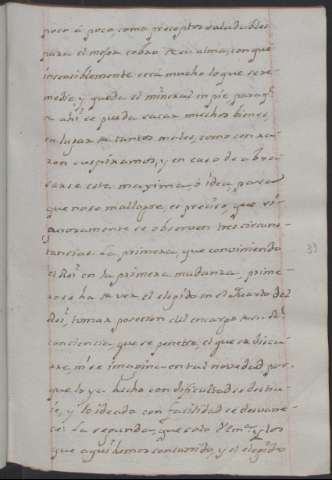 poco á poco, como preceptos saludables
para el mejor cobro de su alma, con que
insensiblemente será mucho lo que se re-
medie, y queda el mineral en pie para q.e
de ahí se pueda sacar muchos bienes
en lugar de tantos males, como con ra-
zon suspiramos, y en caso de abra-
zarse esta maxima, ó idea, para
que no se mallogre, es preciso, que ri-
gurosamente se observen tres circuns-
tancias. La primera, que conviniendo
el Rei en la primera mudanza, prime-
ro se ha de ver el elegido en el Quarto del
Rei, tomar posesion del encargo de su
conciencia, que se penetre, el que se discu-
rre, ni se imagine en tal novedad por-
que lo ya hecho con dificultad se destru-
ie, y lo ideado con facilidad se desvane-
ce: La segunda, que solo V. Em.a y los
que aquí hemos concurrido, y el elegido
39